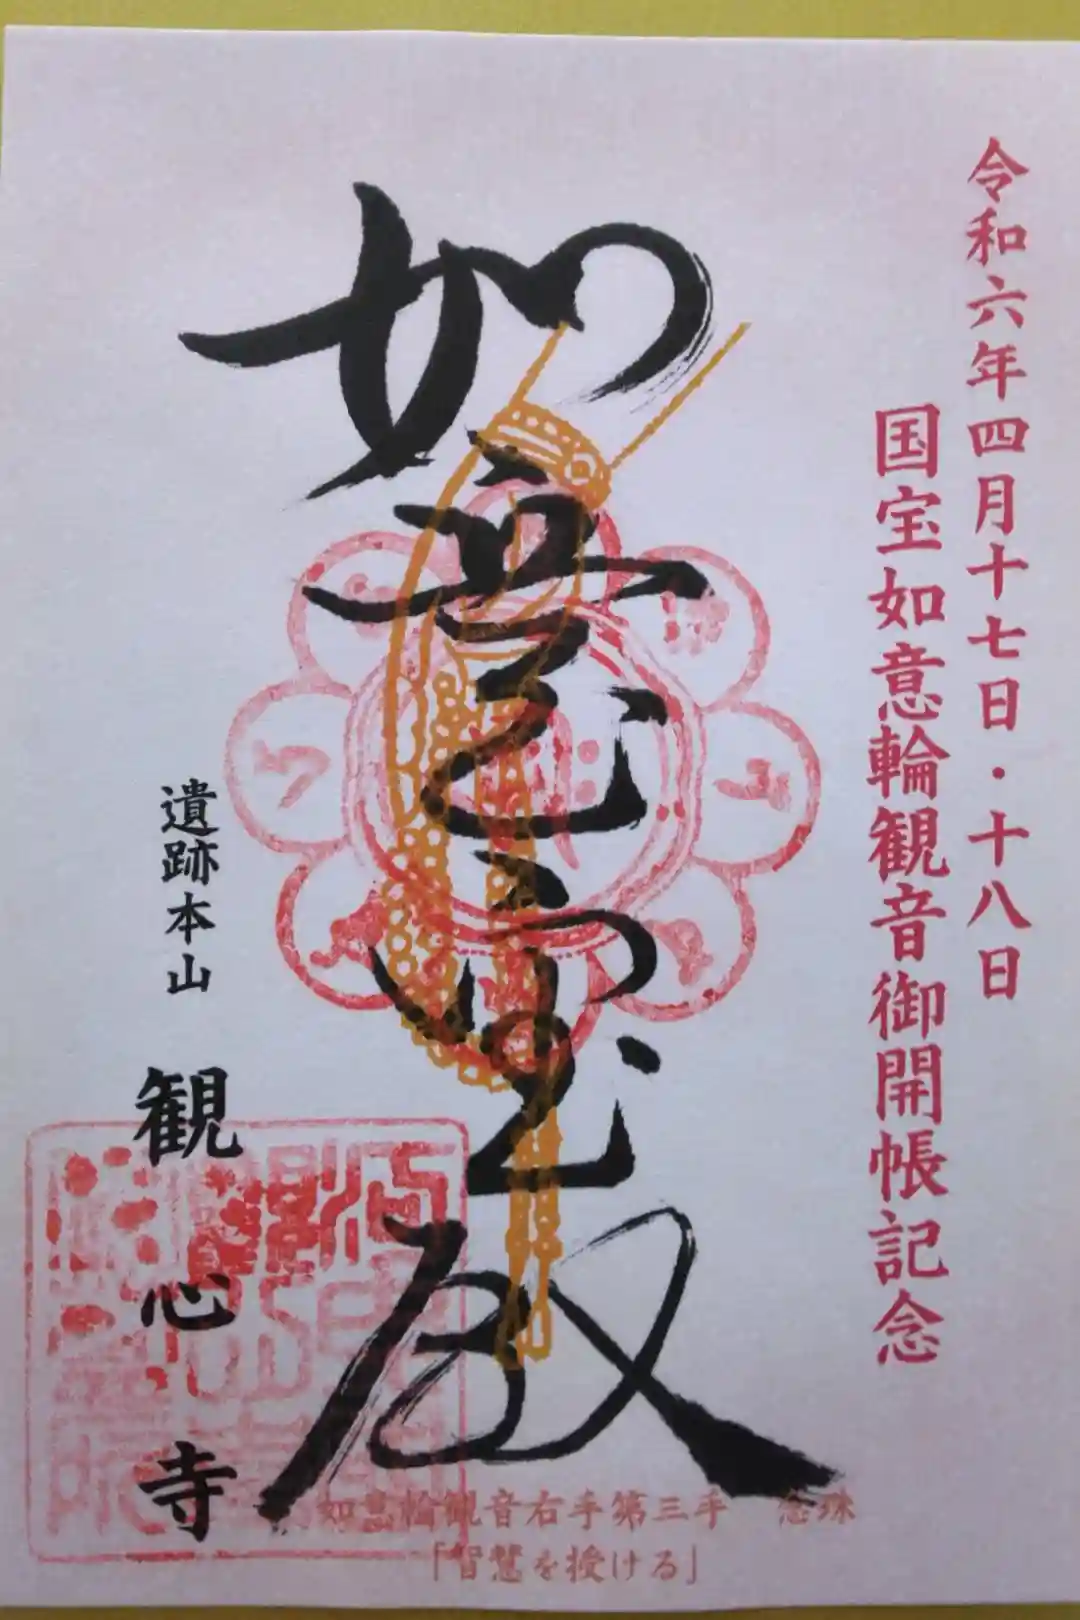 令和六年四月十七日・十八日
国宝如意輪観音御開帳記念
如意宝殿
遺跡本山
観心寺
如意輪観音右手第三手　念珠
「智慧を授ける」